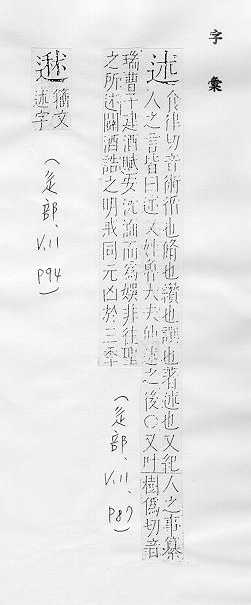 字彙
述 食律切音術循也脩也纘也譔也著述也又紀人之事纂
人之言皆曰述又姓魯大夫仲述之後○又叶樹僞切音
瑞曹子建酒賦安沉湎而爲娛非往聖
之所述闞酒誥之明戒同元凶於三季
(辵部、V.11、P87)
䢤 籀文
述字
(辵部、V.11 P94)